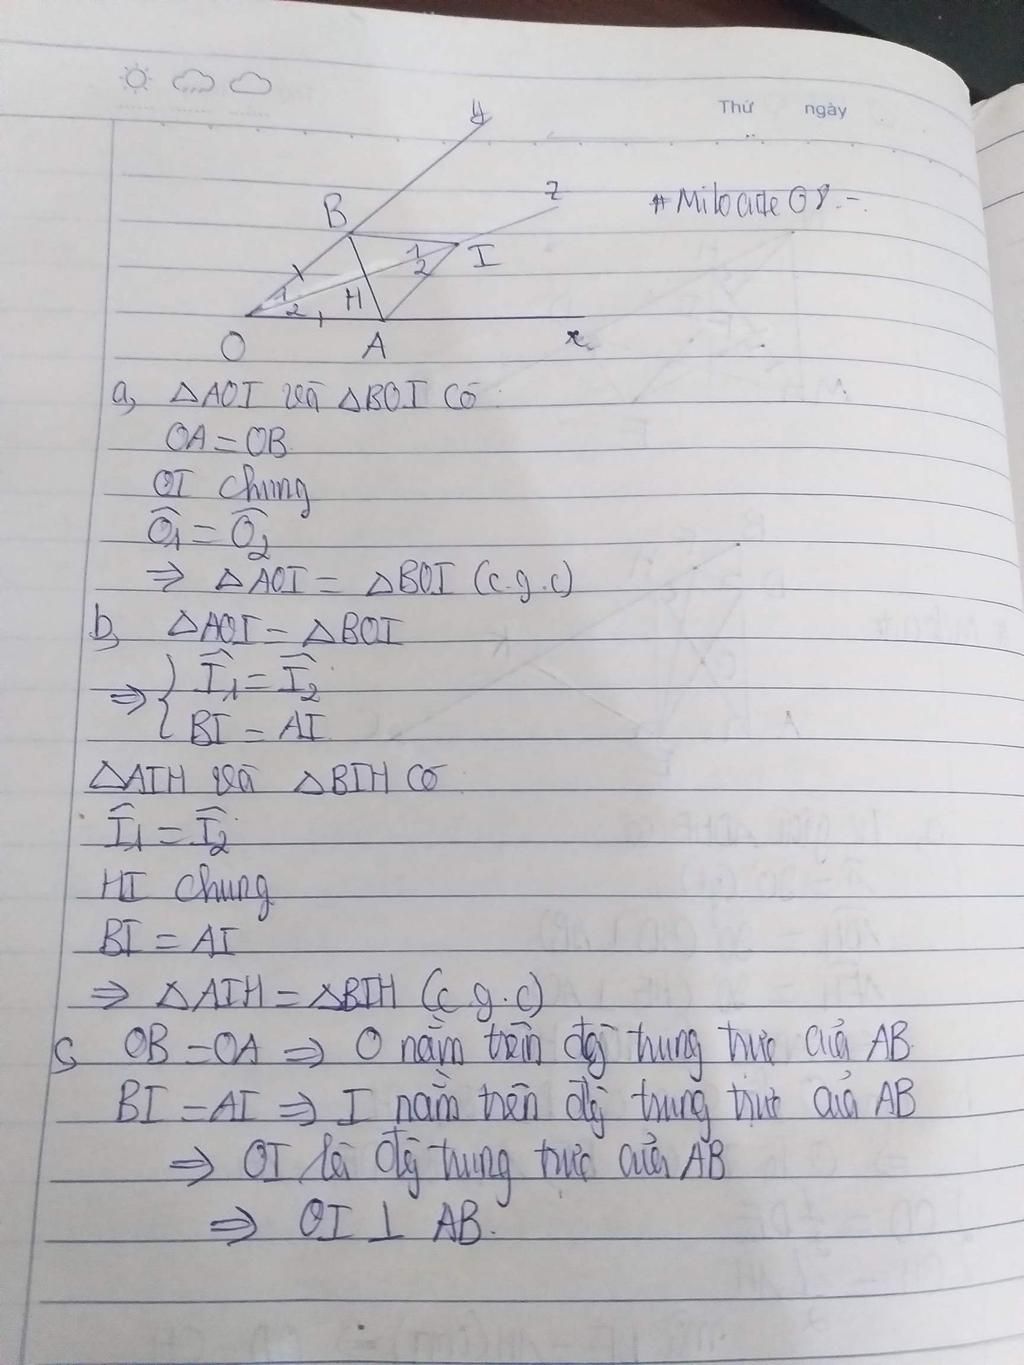 Thứ ngày
y
B
z
# Milo cute 08.-
1
I
2
1
H
2
O
A
x
a, △AOI và △BOI có:
OA = OB
OI chung
Ô1 = Ô2
⇒ △AOI = △BOI (c.g.c)
b, △AOI = △BOI
⇒ { Î1 = Î2
BI = AI
△AIH và △BIH có
Î1 = Î2
HI chung
BI = AI
⇒ △AIH = △BIH (c.g.c)
c, OB = OA ⇒ O nằm trên đg trung trực của AB
BI = AI ⇒ I nằm trên đg trung trực của AB
⇒ OI là đg trung trực của AB
⇒ OI ⊥ AB.